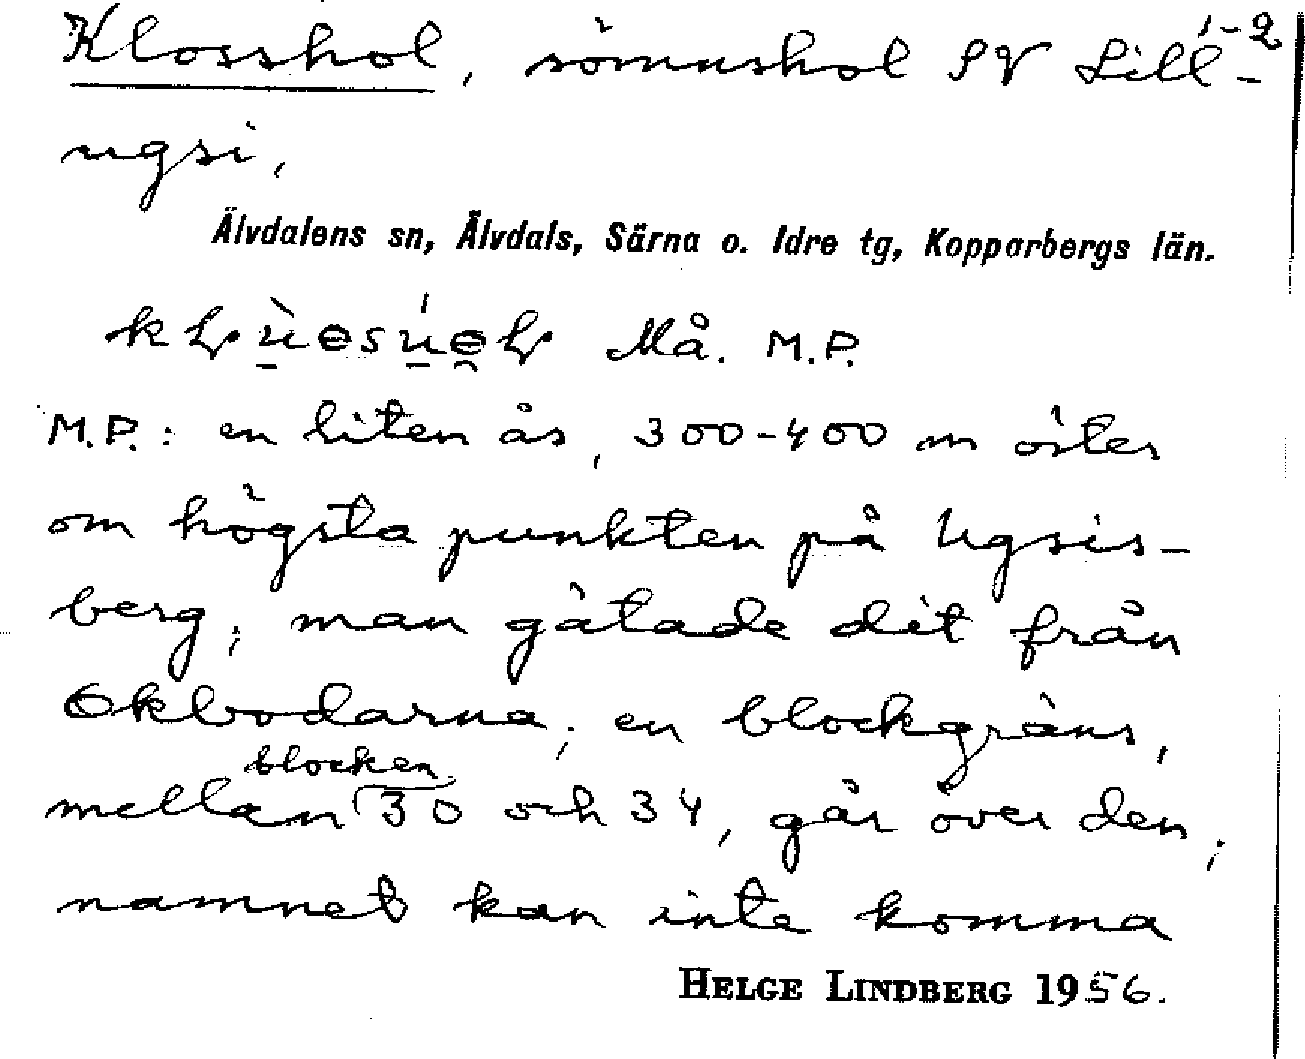 Klosshol, sömnshol SV Lill- 1-2
ugsi,
Älvdalens sn, Älvdals, Särna o. Idre tg, Kopparbergs län.
Må. M.P.
M.P.: en liten ås, 300-400 m öster
om högsta punkten på Ugsis-
berg; man gätade dit från
Okbodarna; en blockgräns,
blocken
mellan 30 och 34, går över den;
namnet kan inte komma
HELGE LINDBERG 1956.